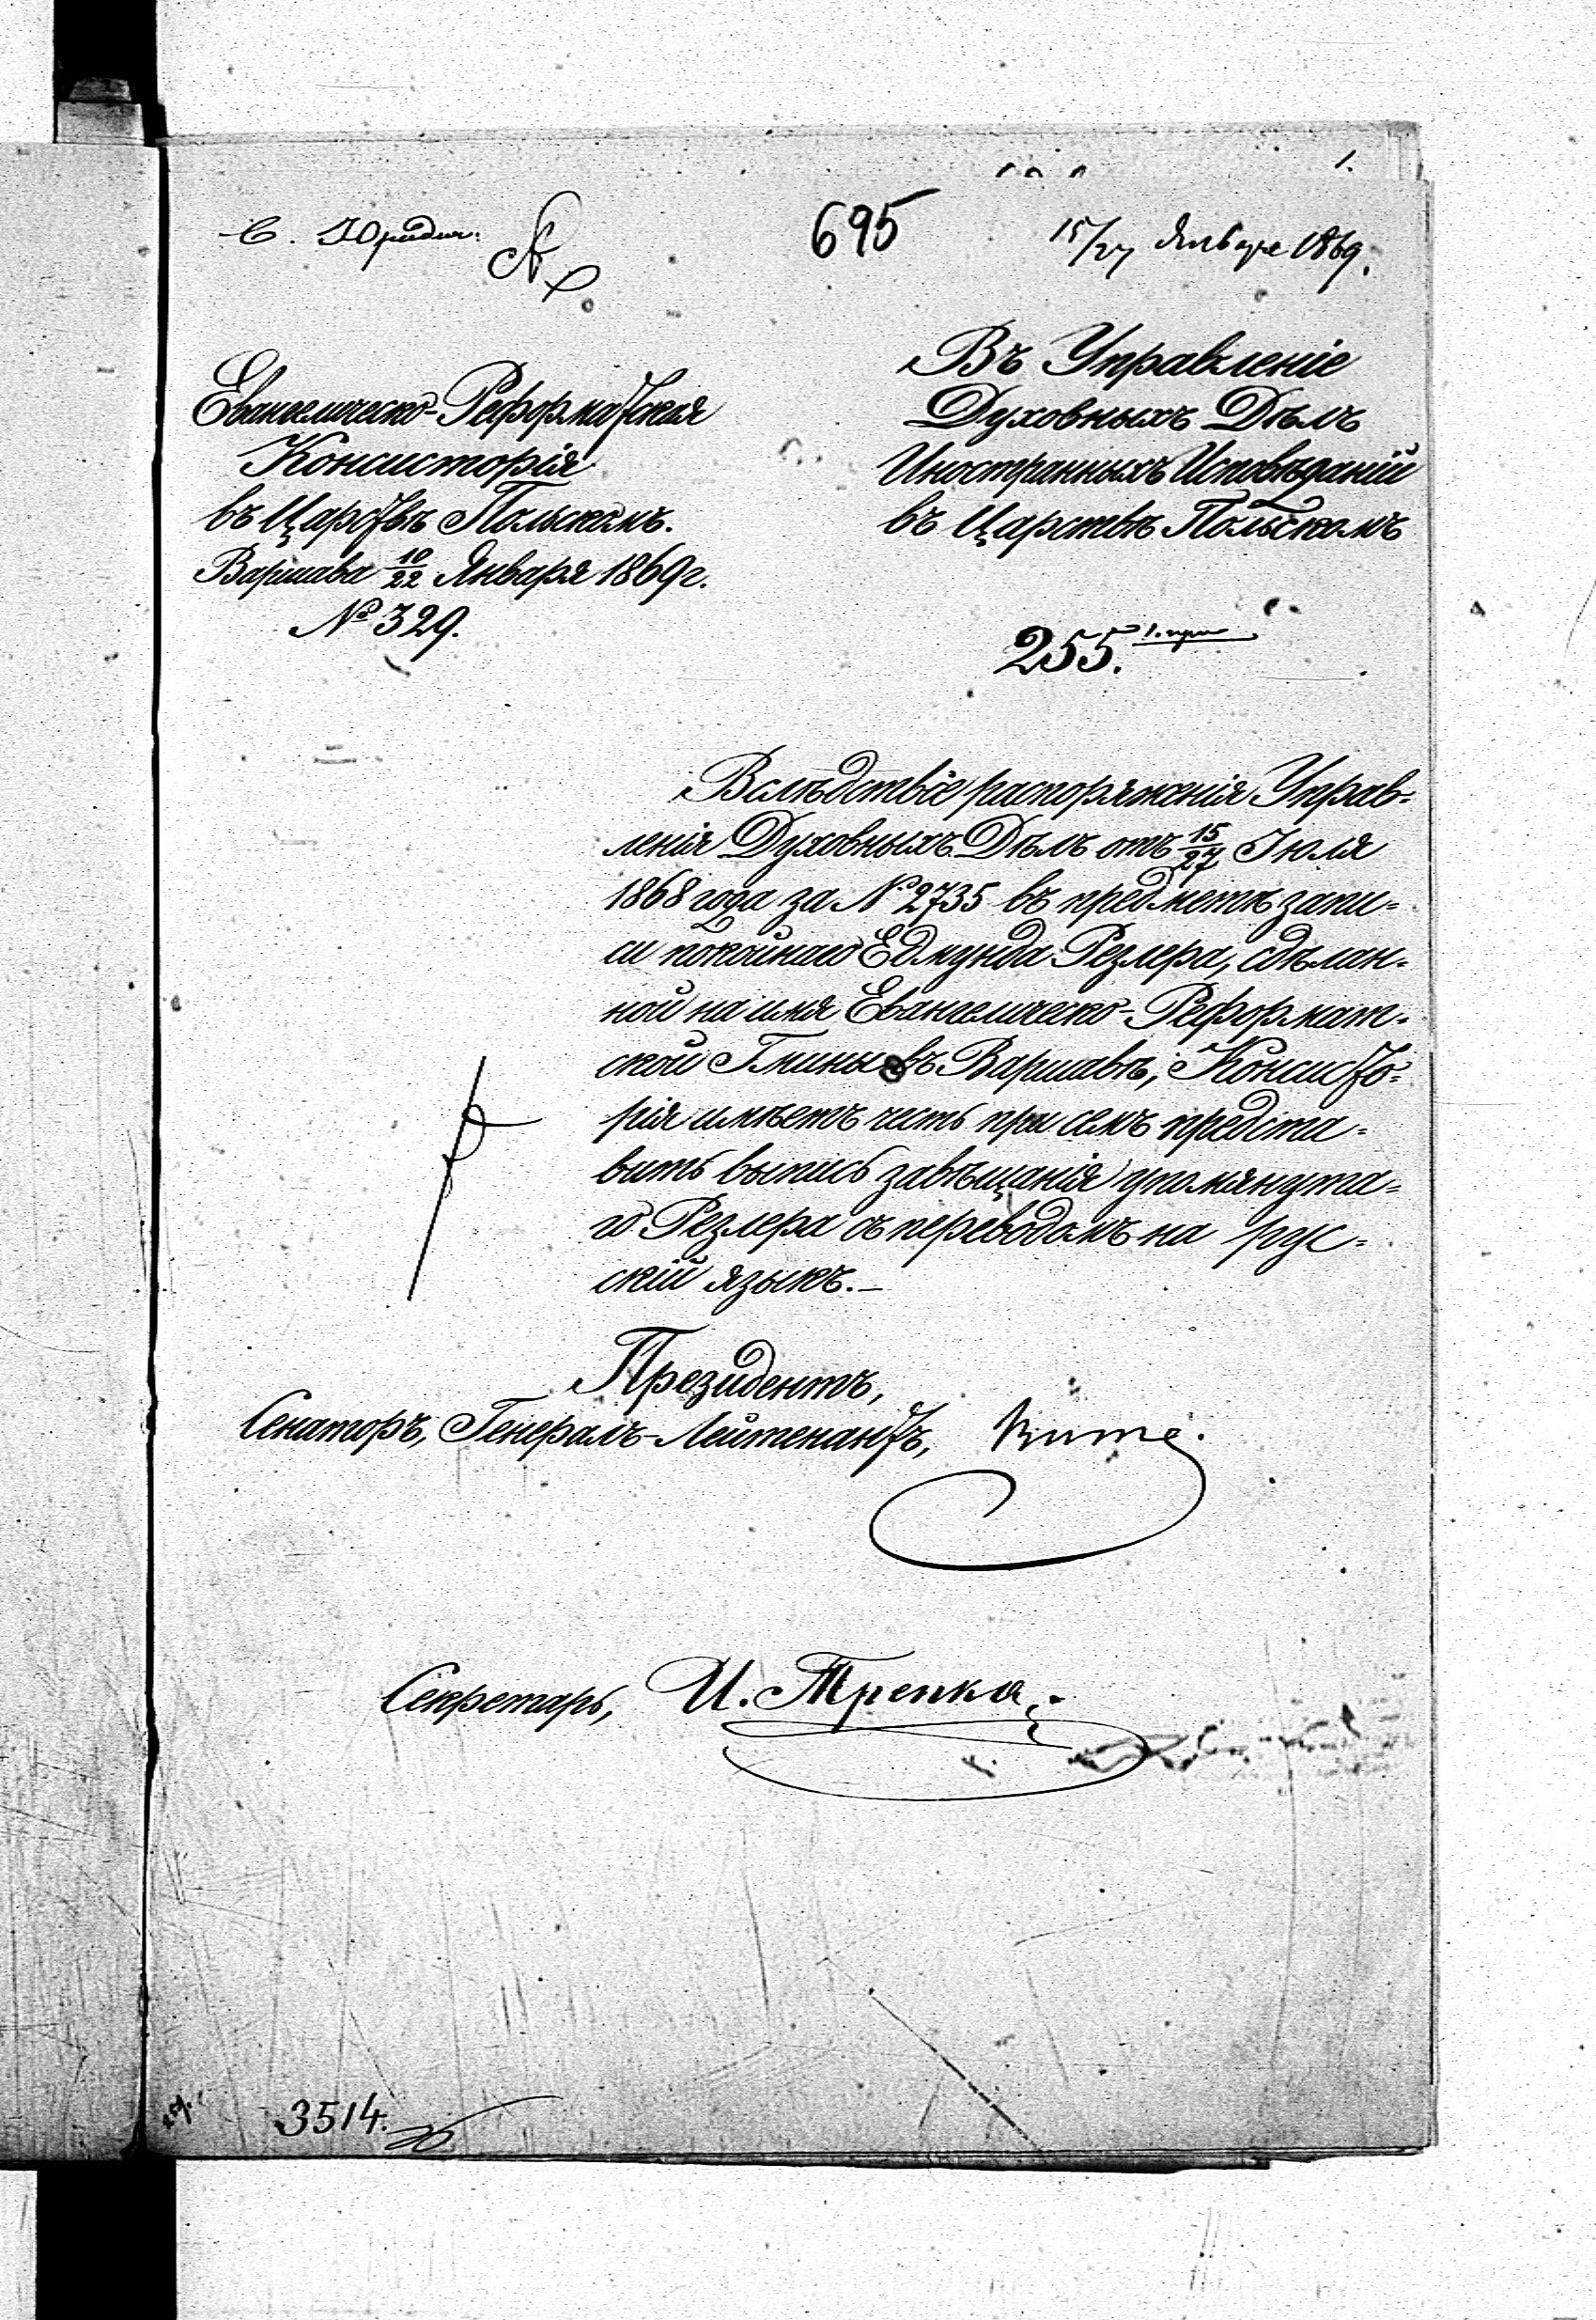 1.
С. Юридич:
695
15/27 Января 1869.
Евангелическо-Реформатская
Консисторія
въ Царствѣ Польскомъ.
Варшава 10/22 Января 1869 г.
№ 329.
Въ Управленіе
Духовныхъ Дѣлъ
Иностранныхъ Исповѣданій
въ Царствѣ Польскомъ
255. 1. при
Вслѣдствіе распоряженія Управ-
ленія Духовныхъ Дѣлъ отъ 15/27 Іюля
1868 года за № 2735 въ предметѣ запи-
си покойнаго Едмунда Резлера, сдѣлан-
ной на имя Евангелическо-Реформат-
ской Гмины въ Варшавѣ, Консисто-
рія имѣетъ честь при семъ предста-
вить выпись завѣщанія упомянута-
го Резлера съ переводомъ на рус-
скій языкъ.—
Президентъ,
Сенаторъ, Генералъ-Лейтенантъ, Витте.
Секретарь, И. Трепка
3514.